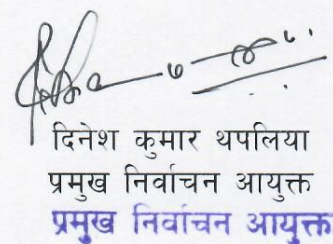 दिनेश कुमार थपलिया
प्रमुख निर्वाचन आयुक्त
प्रमुख निर्वाचन आयुक्त